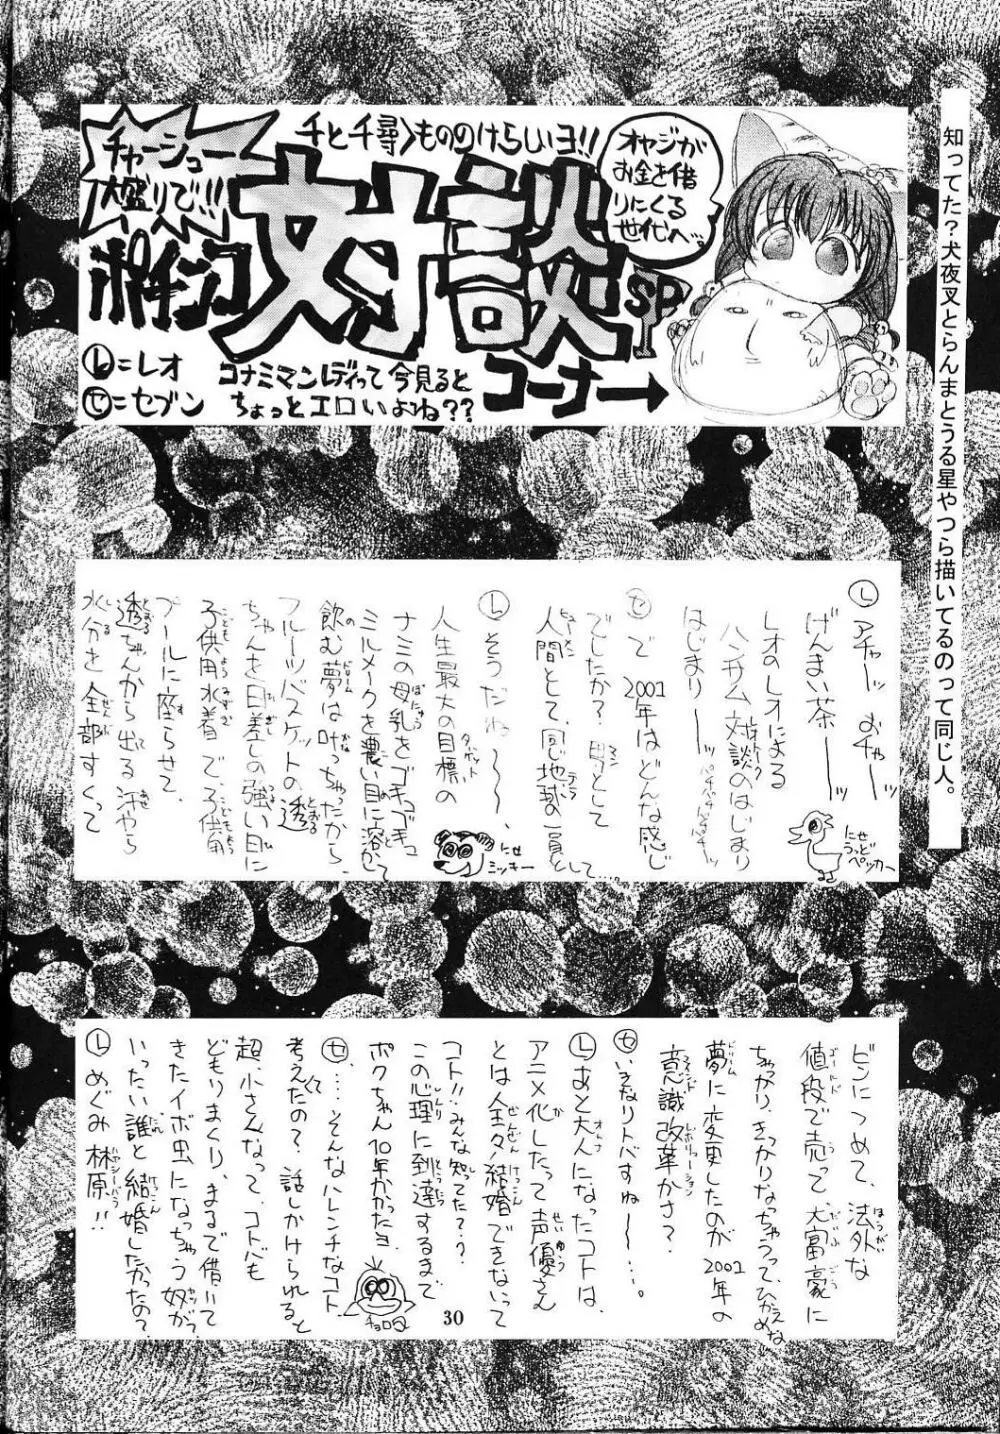 知ってた?犬夜叉とらんまとうる星やつら描いてるのって同じ人。
チャーシュー
大盛りで!!
千と千尋〉もののけらしいヨ!!
オヤジが
お金を借
りにくる
世代へ。
ポイズンコ
対談
SP
コーナー→
Ⓛ=レオ
㋝=セブン
コナミマンレディって今見ると
ちょっとエロいよね??
Ⓛアチャーッ おチャーッ
げんまい茶ーーッ
レオのレオによる
ハンサム対談のはじまり
はじまりーーッ
にせ
ウッド
ペッカー
㋝で 2001年はどんな感じ
でしたか? 男として
人間として、同じ地球の一員として…。
Ⓛそうだね〜〜、
人生最大の目標の
ナミの母乳をゴキュゴキュ
ミルメークを濃い目に溶かして
飲む夢は叶っちゃったから、
にせ
ミッキー
フルーツバスケットの透
ちゃんを日差しの強い日に
子供用水着で子供用
プールに座らせて、
透ちゃんから出る汗やら
水分を全部すくって
ビンにつめて、法外な
値段で売って、大富豪に
ちゃっかり、きっかりなっちゃうって、ひかえめな
夢に変更したのが 2001年の
意識改革かさ?
㋝いきなりトバすねー……。
Ⓛあと大人になったコトは、
アニメ化したって声優さん
とは全々結婚できないって
コト!!みんな知ってた??
この心理に到達するまで
ポクちゃん10年かかったヨ
チョロQ
㋝…そんなハレンチなコト
考えてたの? 話しかけられると
超、小さくなって、コトバも
どもりまくり、まるで借いて
きたイボ虫になっちゃう奴が?
いったい誰と結婚したかったの?
Ⓛめぐみ林原!!
30